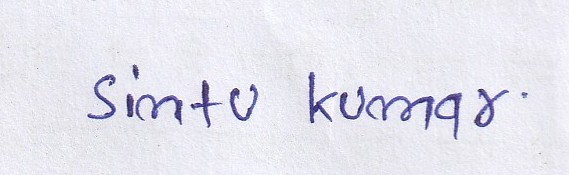 Sintu kumar.